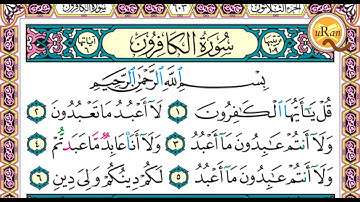 سُورَةُ الكَافِرُونَ
uRan
بِسْمِ ٱللَّهِ ٱلرَّحْمَٰنِ ٱلرَّحِيمِ
قُلْ يَٰٓأَيُّهَا ٱلْكَٰفِرُونَ ١ لَآ أَعْبُدُ مَا تَعْبُدُونَ ٢
وَلَآ أَنتُمْ عَٰبِدُونَ مَآ أَعْبُدُ ٣ وَلَآ أَنَا۠ عَابِدٌ مَّا عَبَدتُّمْ ٤
وَلَآ أَنتُمْ عَٰبِدُونَ مَآ أَعْبُدُ ٥ لَكُمْ دِينُكُمْ وَلِىَ دِينِ